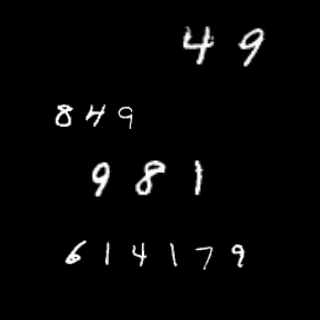 49
849
981
614179